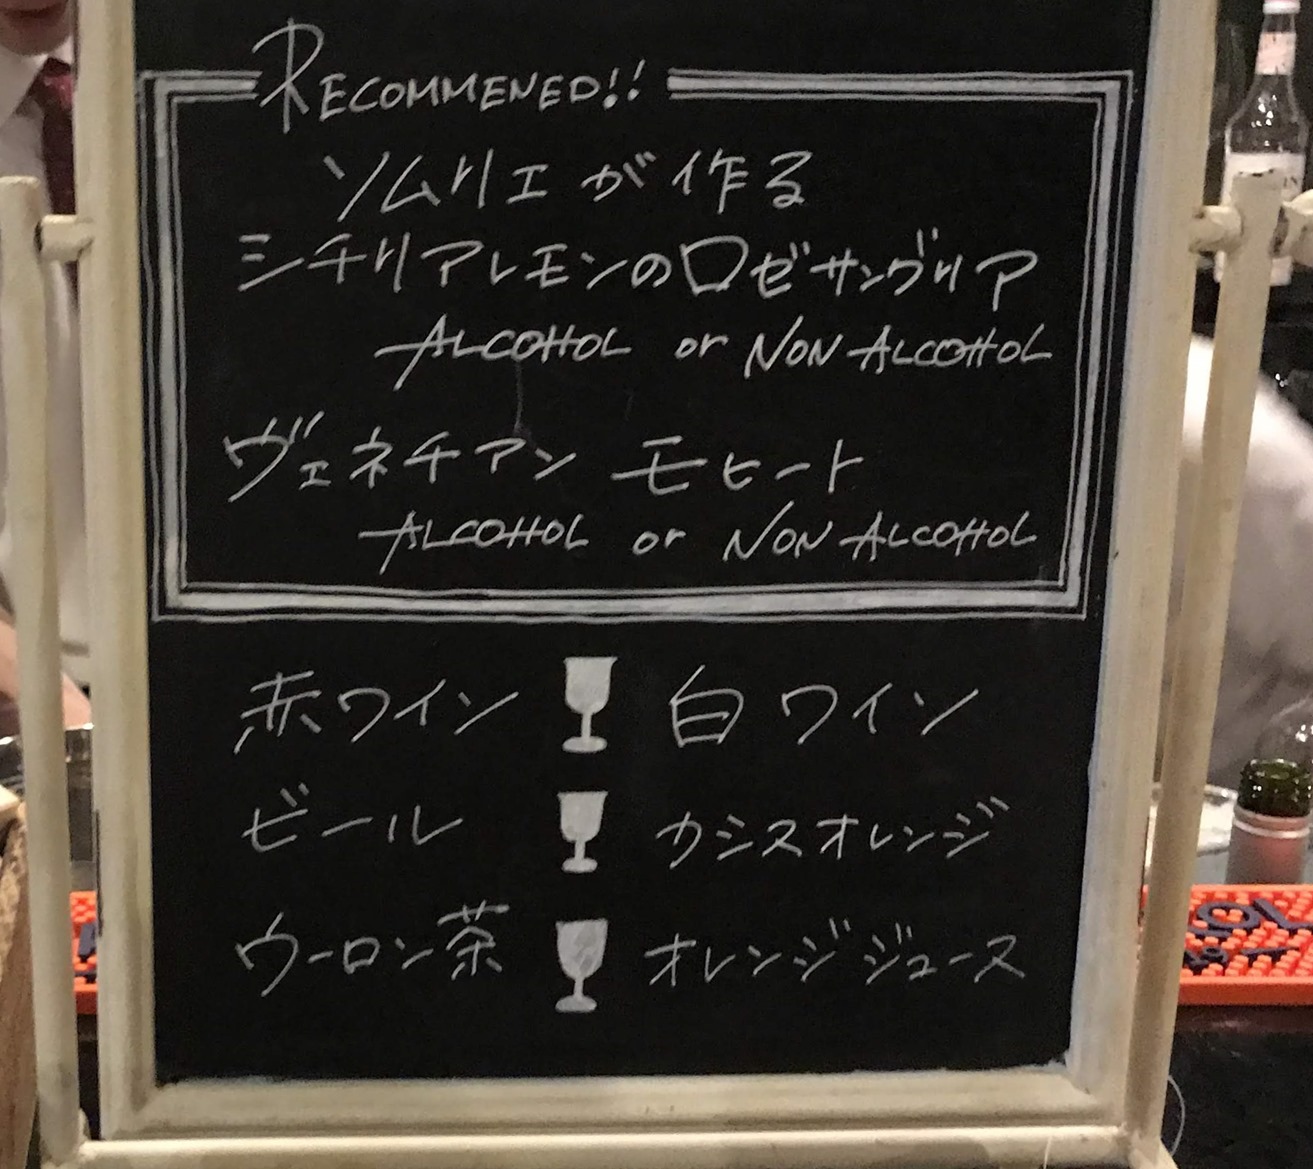 RECOMMENED!!
ソムリエが作る
シチリアレモンのロゼサングリア
ALCOHOL or NON ALCOHOL
ヴェネチアン モヒート
ALCOHOL or NON ALCOHOL
赤ワイン 白ワイン
ビール カシスオレンジ
ウーロン茶 オレンジジュース